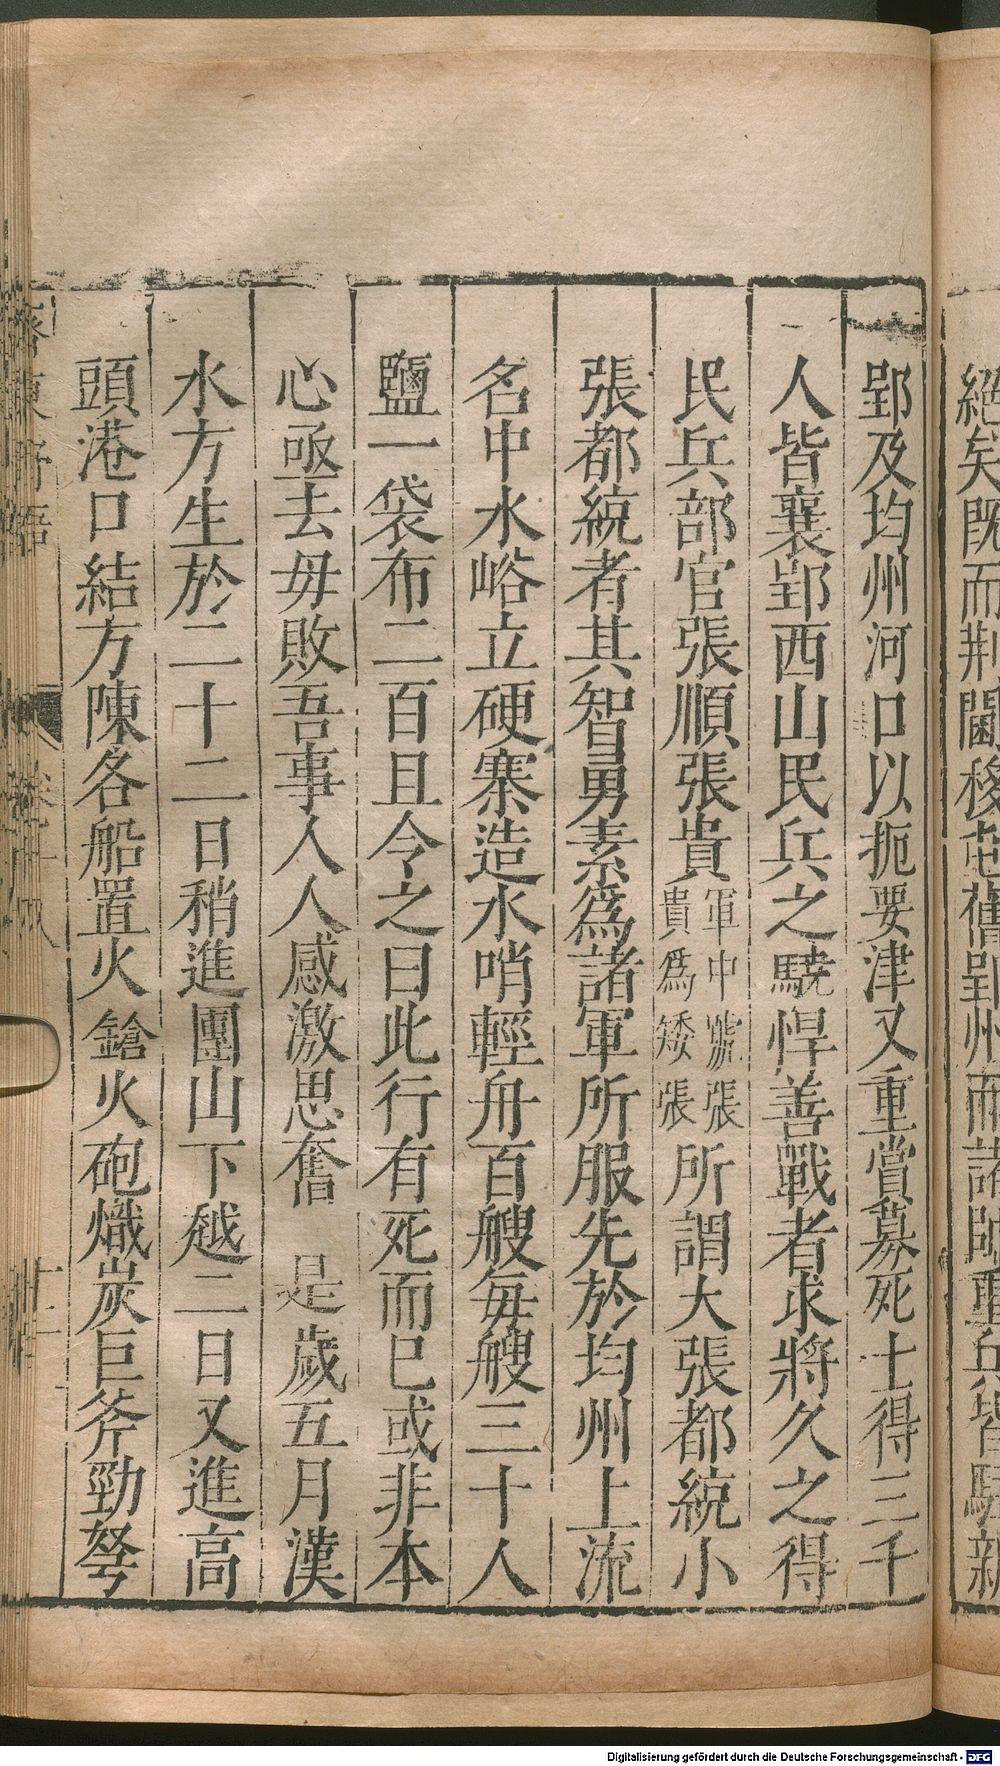 郢及均州河口以扼要津又重賞募死士得三千
人皆襄郢西山民兵之驍悍善戰者求將久之得
民兵部官張順張貴軍中號張貴為矮張所謂大張都統小
張都統者其智勇素為諸軍所服先於均州上流
名中水峪立硬寨造水哨輕舟百艘每艘三十人
鹽一袋布二百且令之曰此行有死而已或非本
心亟去毋敗吾事人人感激思奮　是歲五月漢
水方生於二十二日稍進團山下越二日又進高
頭港口結方陳各船置火鎗火砲熾炭巨斧勁弩
絕矣既而荆閫移屯舊郢州而諸帥重兵皆駐新
Digitalisierung gefördert durch die Deutsche Forschungsgemeinschaft - DFG